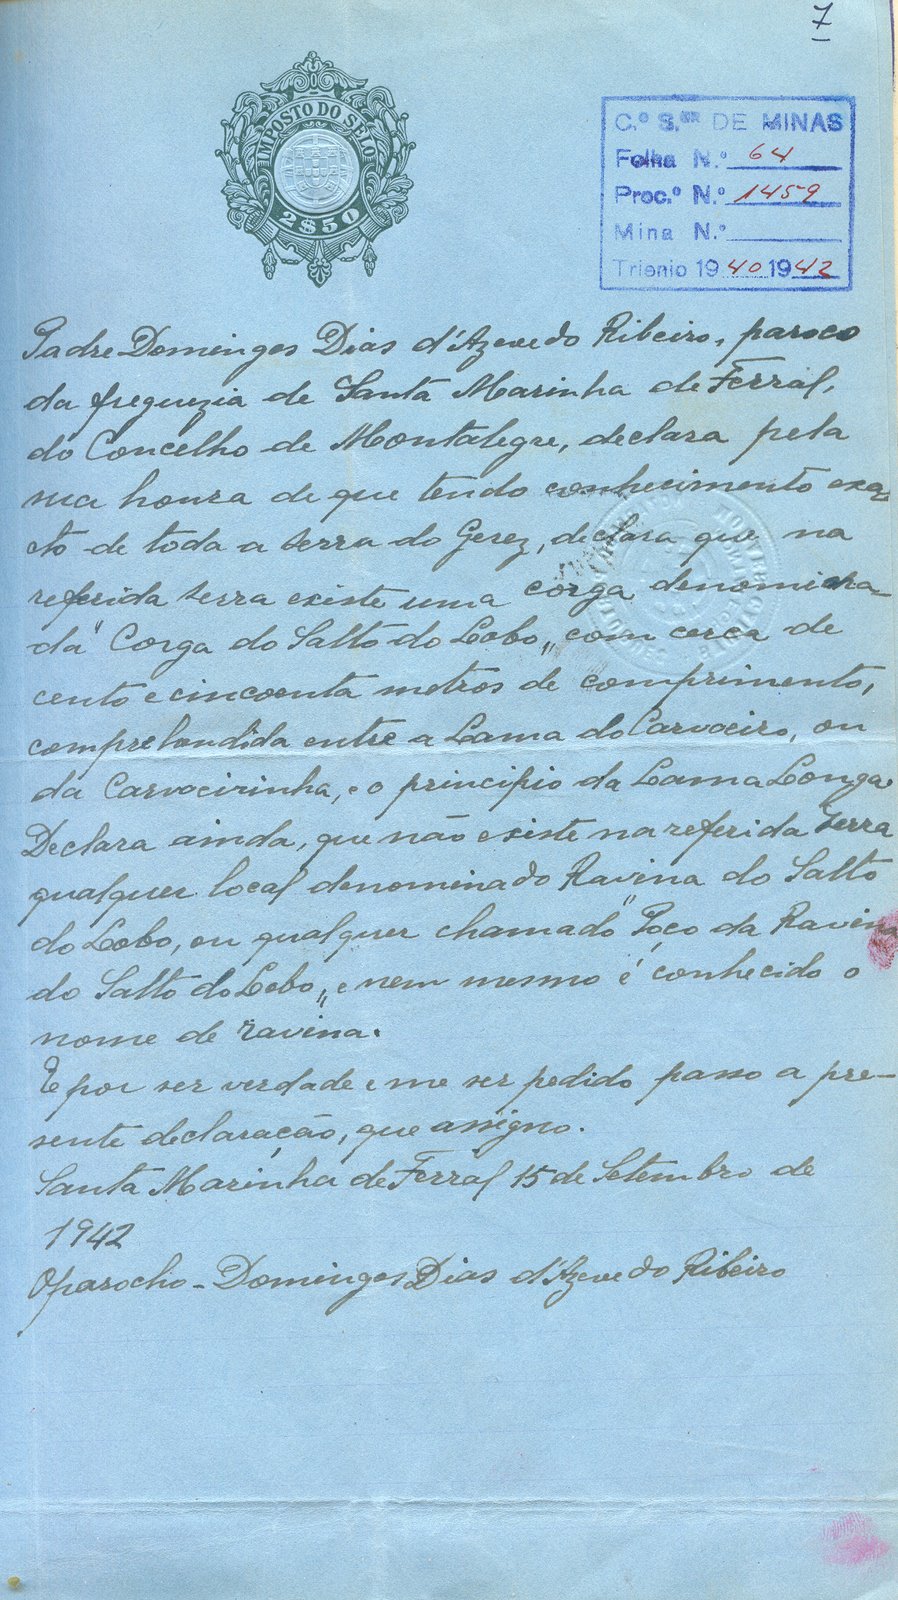 7
IMPOSTO DO SÊLO
2$50
C.º S.ºr DE MINAS
Folha N.º 64
Proc.º N.º 1459
Mina N.º
Trienio 1940 1942
Padre Domingos Dias d'Azevedo Ribeiro, paroco
da freguezia de Santa Marinha de Ferral,
do Concelho de Montalegre, declara pela
sua honra de que tendo conhecimento exa-
cto de toda a serra do Gerez, declara que na
referida serra existe uma corga denomina-
da "Corga do Salto do Lobo,, com cerca de
cento e cincoenta metros de comprimento,
comprehendida entre a Lama do Carvoeiro, ou
da Carvoeirinha, e o principio da Lama Longa
Declara ainda, que não existe na referida serra
qualquer local denominado Ravina do Salto
do Lobo, ou qualquer chamado "Poço da Ravina
do Salto do Lobo,, e nem mesmo é conhecido o
nome de ravina.
E por ser verdade e me ser pedido passo a pre-
sente declaração, que assigno.
Santa Marinha de Ferral 15 de Setembro de
1942
O parocho - Domingos Dias d'Azevedo Ribeiro